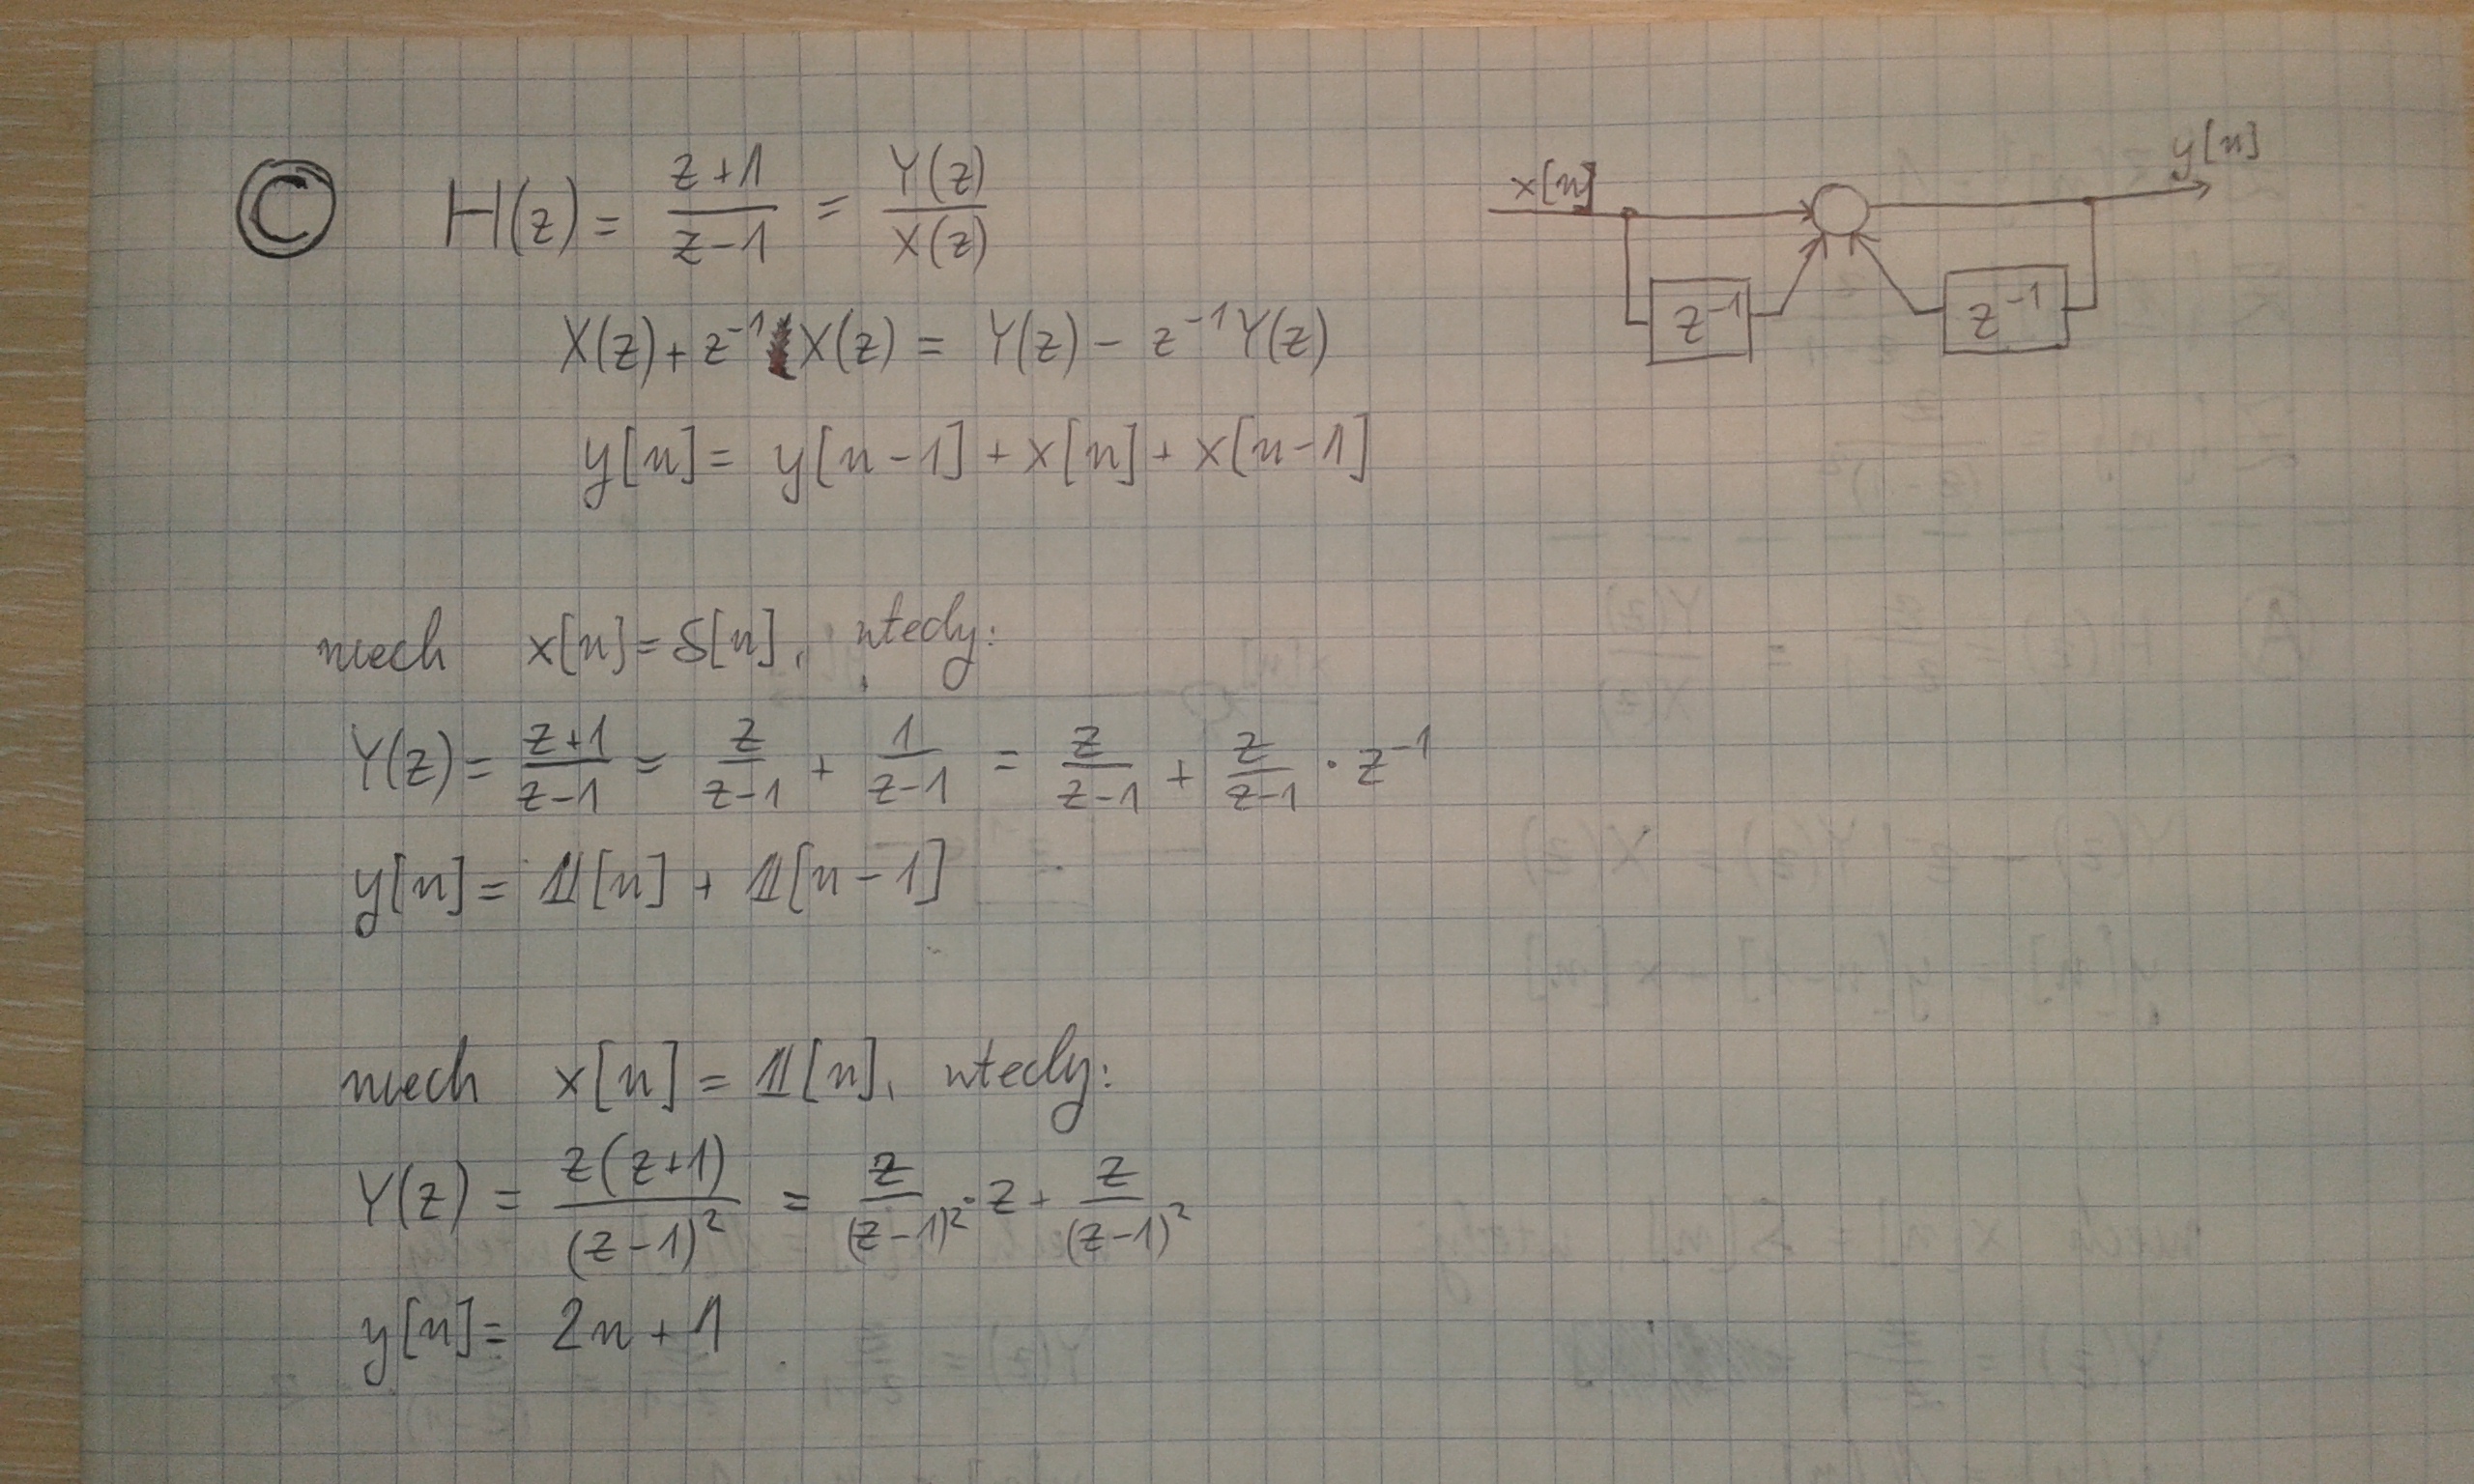 Ⓒ H(z) = \frac{z+1}{z-1} = \frac{Y(z)}{X(z)}
x[n] y[n]
z⁻¹ z⁻¹
X(z) + z⁻¹ X(z) = Y(z) - z⁻¹Y(z)
y[n] = y[n-1] + x[n] + x[n-1]
niech x[n] = δ[n], wtedy:
Y(z) = \frac{z+1}{z-1} = \frac{z}{z-1} + \frac{1}{z-1} = \frac{z}{z-1} + \frac{z}{z-1} · z⁻¹
y[n] = 𝟙[n] + 𝟙[n-1]
niech x[n] = 𝟙[n], wtedy:
Y(z) = \frac{z(z+1)}{(z-1)²} = \frac{z}{(z-1)²} · z + \frac{z}{(z-1)²}
y[n] = 2n + 1